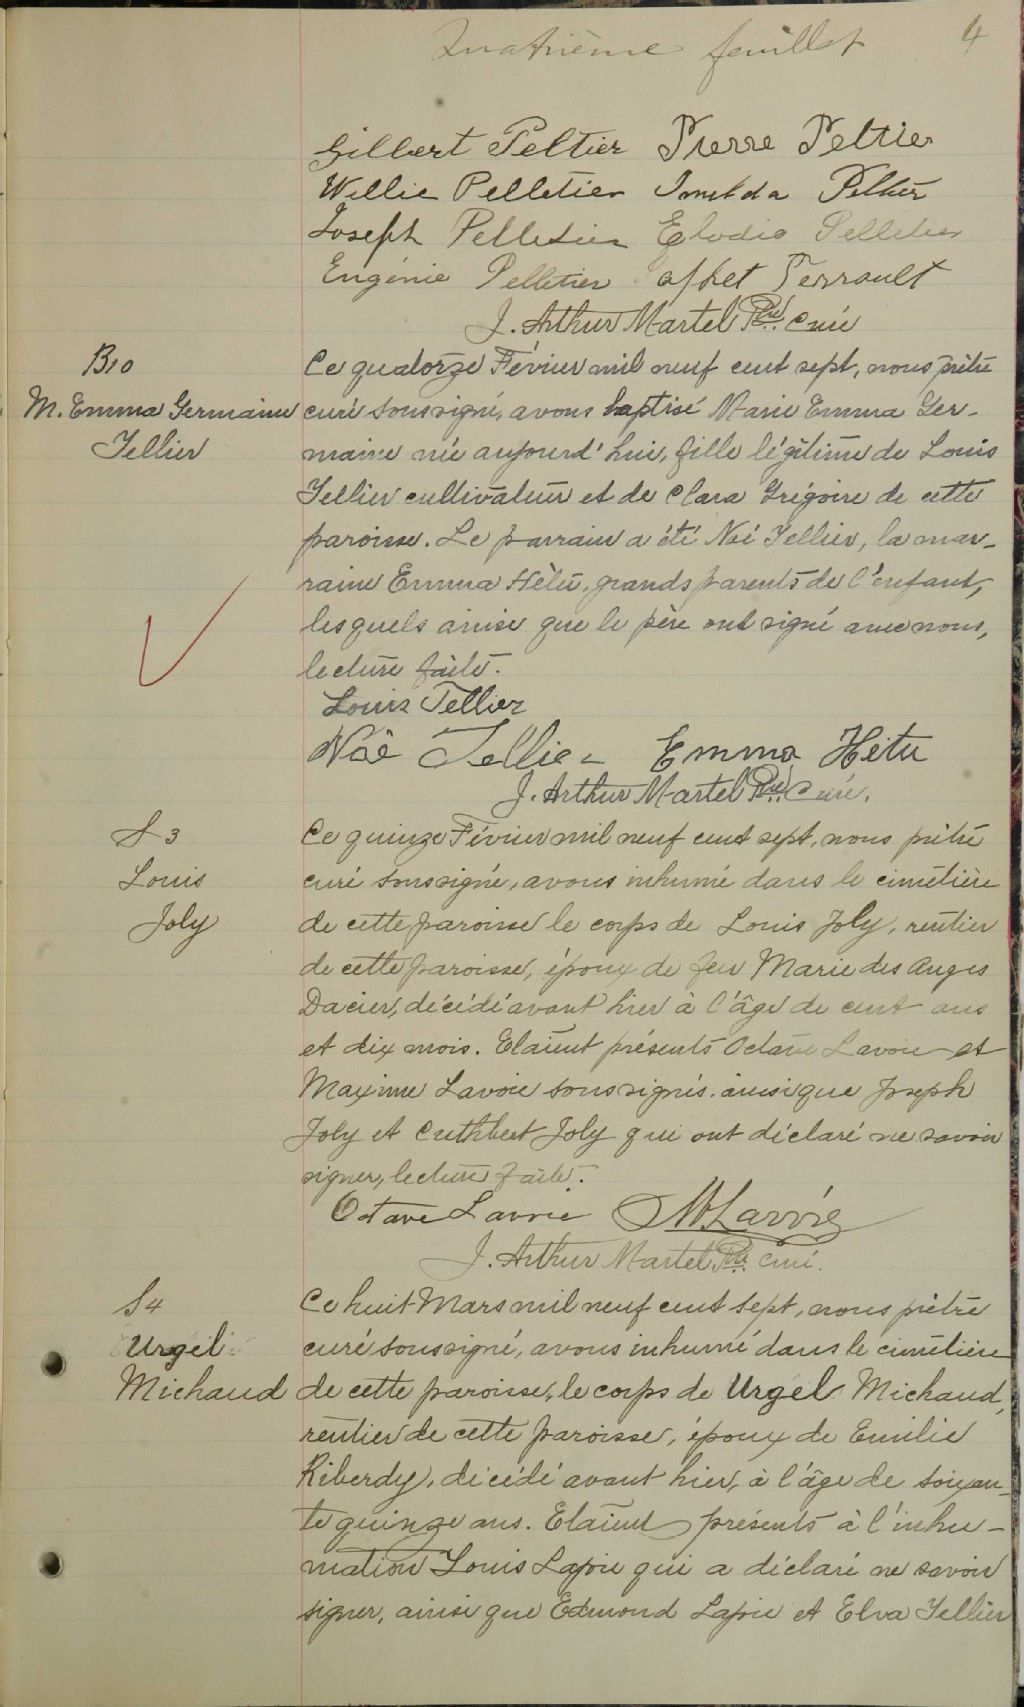 Quatrième feuillet 4
Gilbert Peltier Pierre Peltier
Willie Pelletier Imelda Peltier
Joseph Pelletier Elodia Pelletier
Eugénie Pelletier Perrault
J. Arthur Martel Ptre Curé
B10
M. Emma Germaine
Tellier
Ce quatorze Février mil neuf cent sept, nous prêtre
curé soussigné, avons baptisé Marie Emma Ger-
maine née aujourd'hui, fille légitime de Louis
Tellier cultivateur et de Clara Grégoire de cette
paroisse. Le parrain a été Noé Tellier, la mar-
raine Emma Hétu, grands parents de l'enfant,
lesquels ainsi que le père ont signé avec nous,
lecture faite.
Louis Tellier
Noé Tellier Emma Hétu
J. Arthur Martel Ptre Curé.
S3
Louis
Joly
Ce quinze Février mil neuf cent sept, nous prêtre
curé soussigné, avons inhumé dans le cimetière
de cette paroisse le corps de Louis Joly, rentier
de cette paroisse, époux de feu Marie des Anges
Dacier, décédé avant hier à l'âge de cent ans
et dix mois. Etaient présents Octave Lavoie et
Maxime Lavoie soussignés. ainsi que Joseph
Joly et Cuthbert Joly qui ont déclaré ne savoir
signer, lecture faite.
Octave Lavoie M Lavoie
J. Arthur Martel Ptre Curé.
S4
Urgel
Michaud
Ce huit Mars mil neuf cent sept, nous prêtre
curé soussigné, avons inhumé dans le cimetière
de cette paroisse, le corps de Urgel Michaud,
rentier de cette paroisse, époux de Emilie
Riberdy, décédé avant hier, à l'âge de soixan-
te quinze ans. Etaient présents à l'inhu-
mation Louis Lapie qui a déclaré ne savoir
signer, ainsi que Edmond Lapie et Elva Tellier